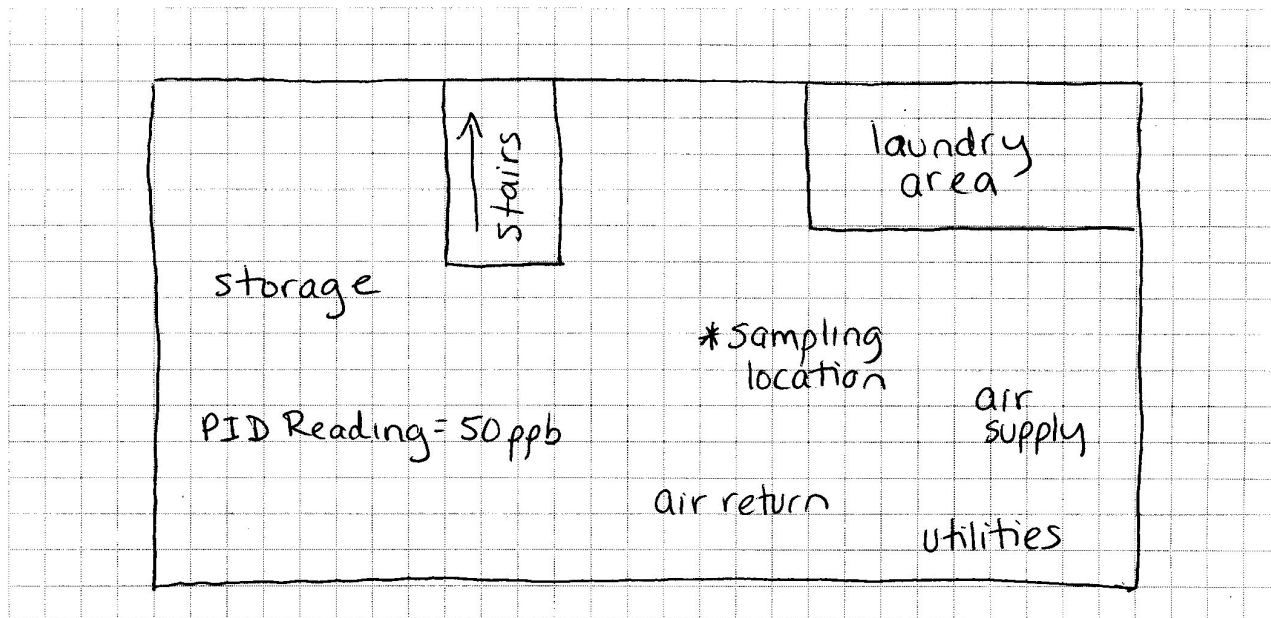 Stairs
laundry
area
storage
*Sampling
location
air
supply
PID Reading = 50 ppb
air return
utilities